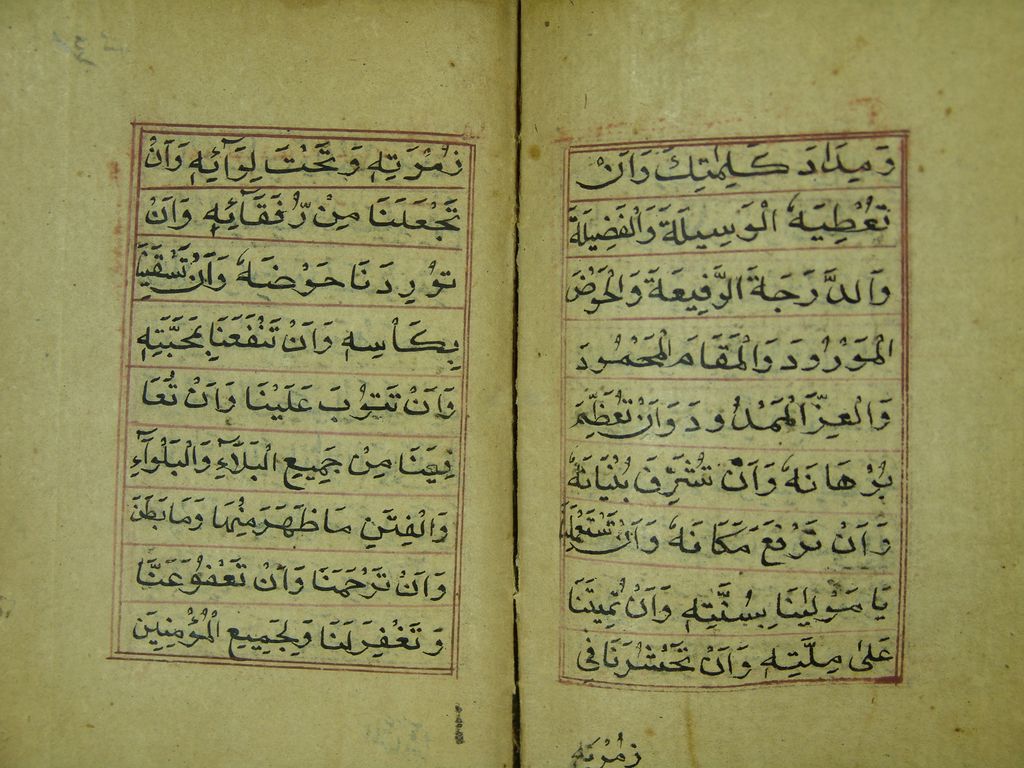 وَمِدَادَ كَلِمَتِكَ وَاَنْ
تُعْطِيَهُ الْوَسِيلَةَ وَالْفَضِيلَةَ
وَالدَّرَجَةَ الرَّفِيعَةَ وَالْحَوْضَ
الْمَوْرُودَ وَالْمَقَامَ الْمَحْمُودَ
وَالْعِزَّ الْمَمْدُودَ وَاَنْ تُعَظِّمَ
بُرْهَانَهُ وَاَنْ تُشَرِّفَ بُنْيَانَهُ
وَاَنْ تَرْفَعَ مَكَانَهُ وَاَنْ تَسْتَعْمِلَنَا
يَا مَوْلٰينَا بِسُنَّتِهِ وَاَنْ تُمِيتَنَا
عَلٰى مِلَّتِهِ وَاَنْ تَحْشُرَنَا فِى
زُمْرَتِهِ
زُمْرَتِهِ وَتَحْتَ لِوَآئِهِ وَاَنْ
تَجْعَلَنَا مِنْ رُّفَقَآئِهِ وَاَنْ
تُورِدَنَا حَوْضَهُ وَاَنْ تَسْقِيَنَا
بِكَاْسِهِ وَاَنْ تَنْفَعَنَا بِمَحَبَّتِهِ
وَاَنْ تَتُوبَ عَلَيْنَا وَاَنْ تُعَا
فِيَنَا مِنْ جَمِيعِ الْبَلَآءِ وَالْبَلْوَآءِ
وَالْفِتَنِ مَا ظَهَرَ مِنْهَا وَمَا بَطَنَ
وَاَنْ تَرْحَمَنَا وَاَنْ تَعْفُوَ عَنَّا
وَتَغْفِرَ لَنَا وَلِجَمِيعِ الْمُؤْمِنِينَ